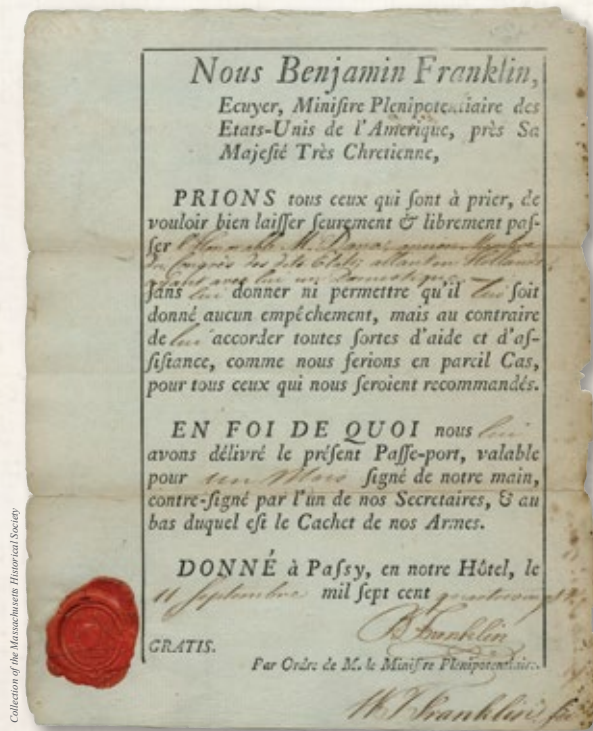 Nous Benjamin Franklin,
Ecuyer, Miniſtre Plenipotentiaire des
Etats-Unis de l'Amerique, près Sa
Majeſté Très Chretienne,
PRIONS tous ceux qui ſont à prier, de
vouloir bien laiſſer ſeurement & librement paſ-
ſer l'Honorable M. Dana, ancien Membre
du Congrès des dits Etats, allant en Hollande,
ayant avec lui un Domestique
ſans lui donner ni permettre qu'il lui ſoit
donné aucun empêchement, mais au contraire
de lui accorder toutes ſortes d'aide et d'aſ-
ſiſtance, comme nous ferions en pareil Cas,
pour tous ceux qui nous ſeroient recommandés.
EN FOI DE QUOI nous lui
avons délivré le préſent Paſſe-port, valable
pour un Mois ſigné de notre main,
contre-ſigné par l'un de nos Secretaires, & au
bas duquel eſt le Cachet de nos Armes.
DONNÉ à Paſſy, en notre Hôtel, le
11 Septembre mil ſept cent
B Franklin
GRATIS.
Par Ordre de M. le Miniſtre Plenipotentiaire.
W T Franklin
Collection of the Massachusetts Historical Society